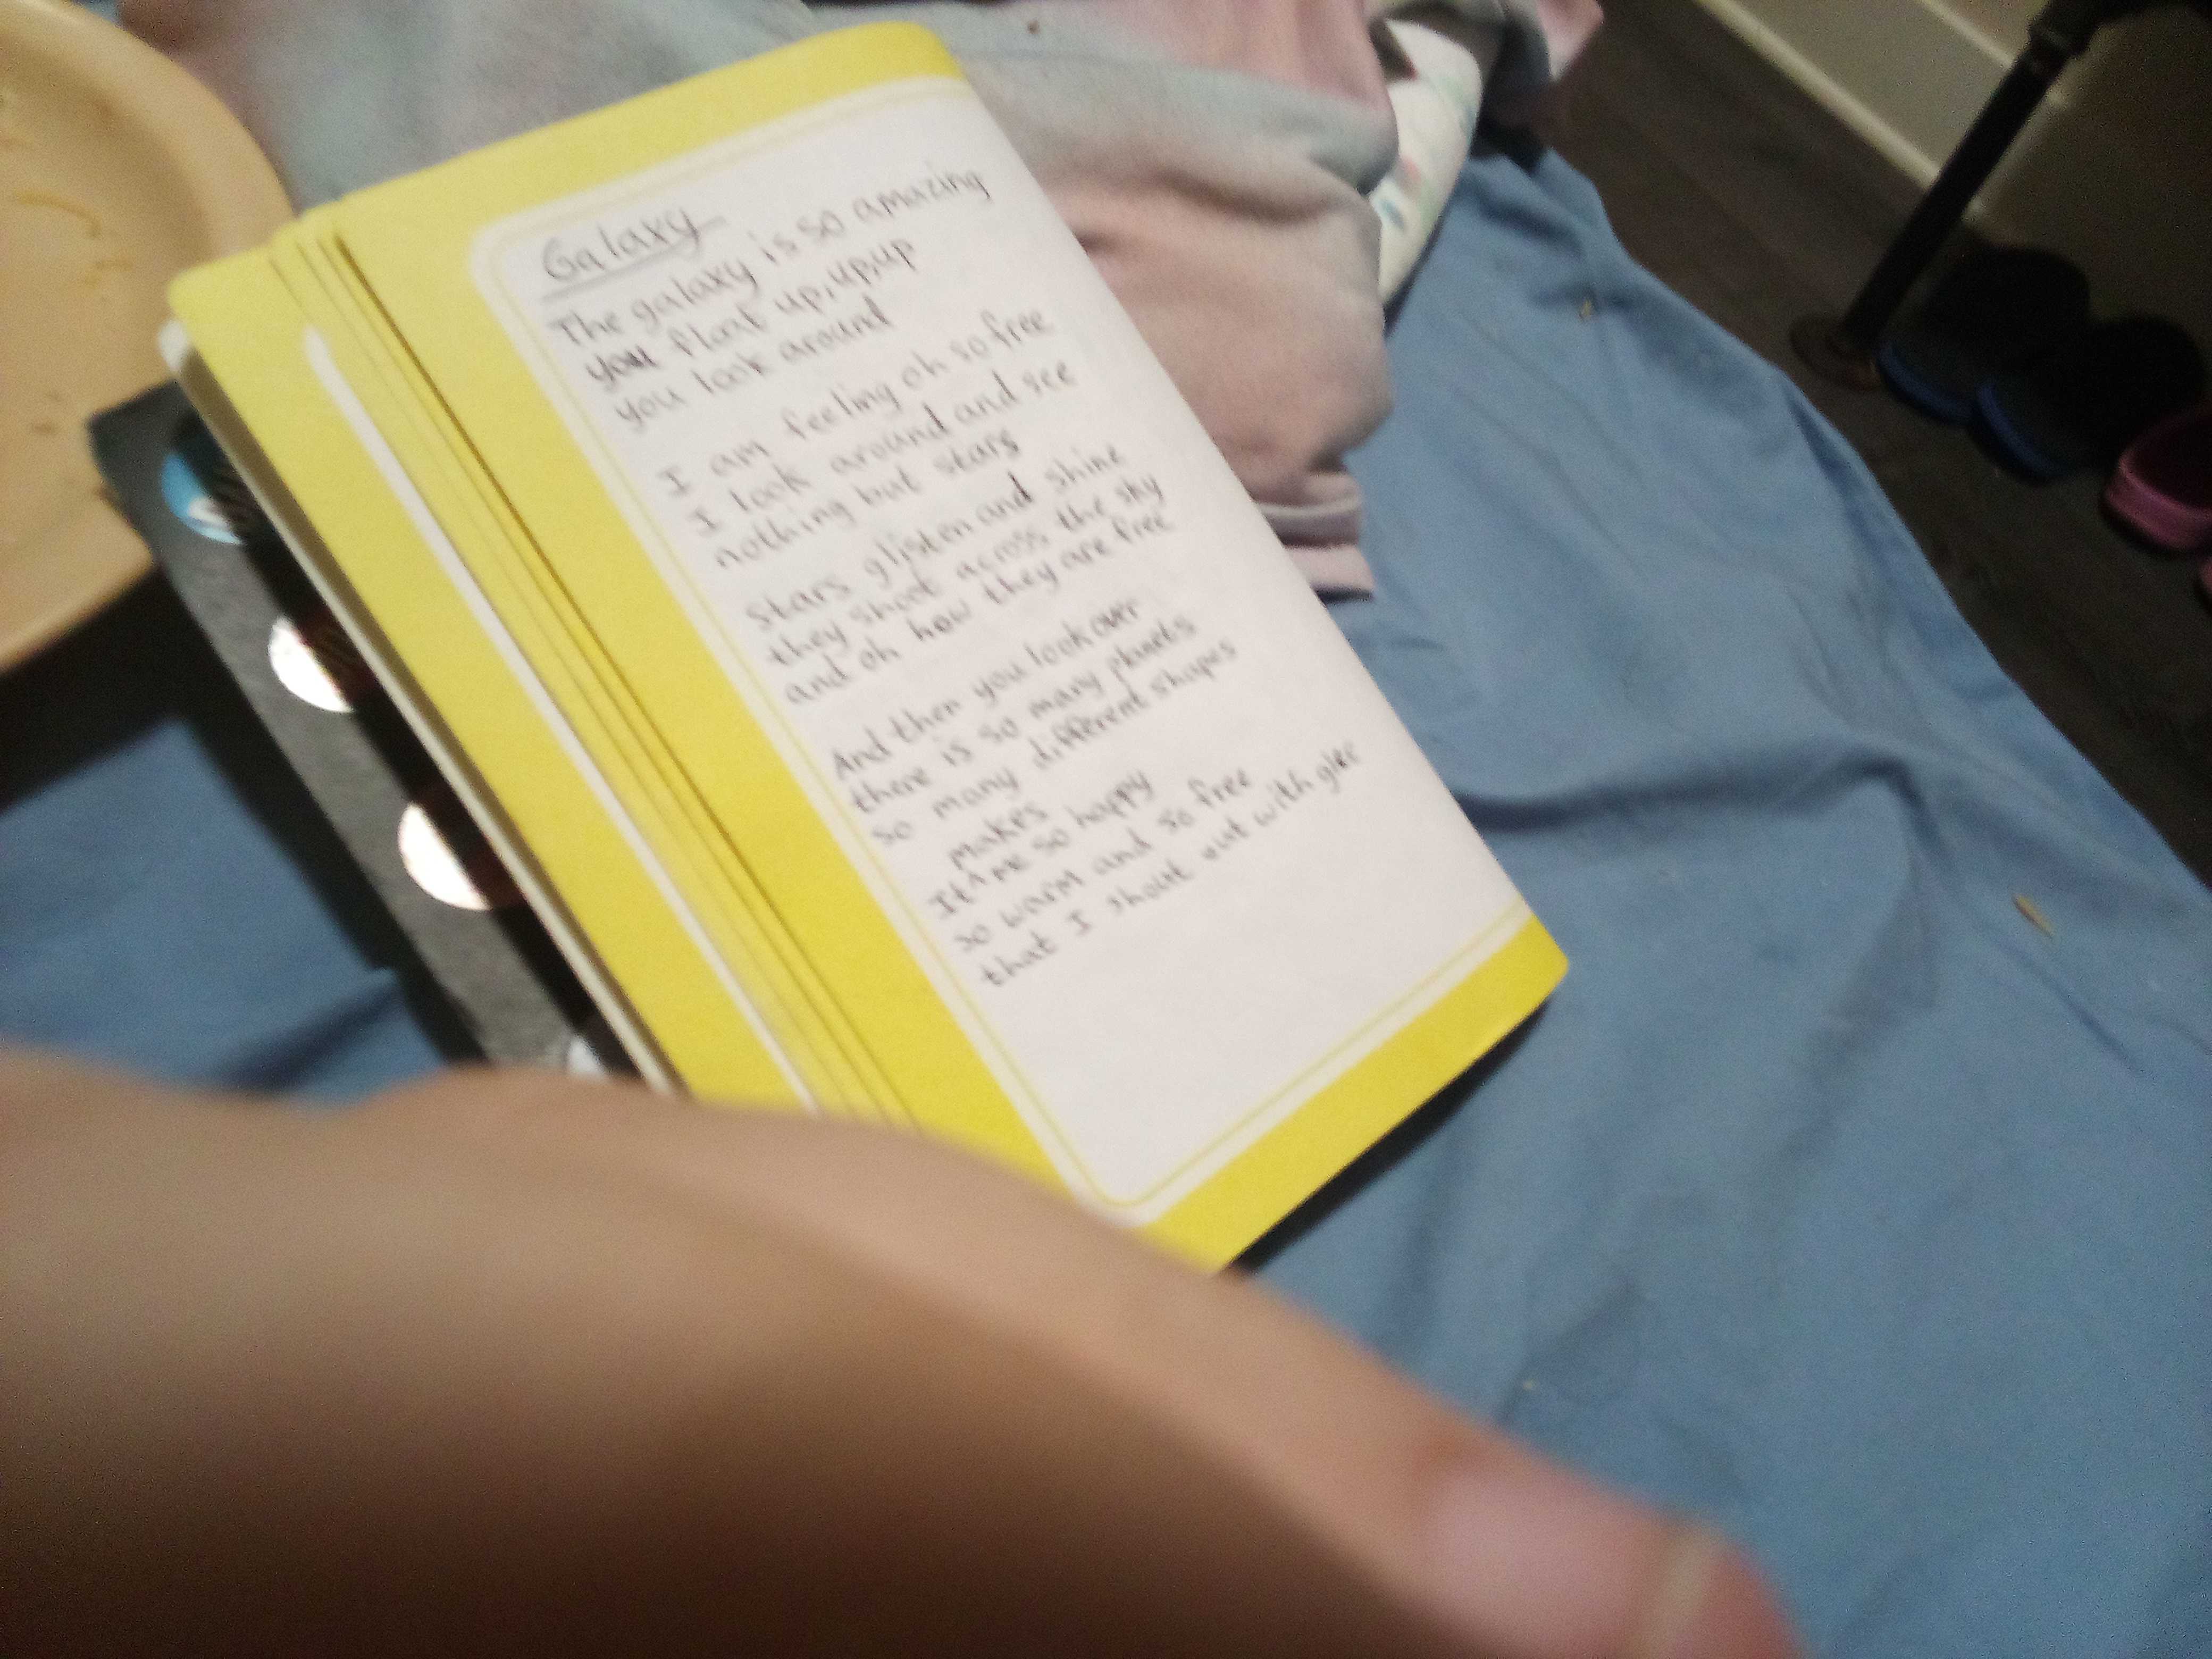 Galaxy
The galaxy is so amazing
you float up, up, up
you look around
I am feeling oh so free
I look around and see
nothing but stars
Stars glisten and shine
they shoot across the sky
and oh how they are free
And then you look over
there is so many planets
so many different shapes
makes
It ^ me so happy
so warm and so free
that I shout out with glee